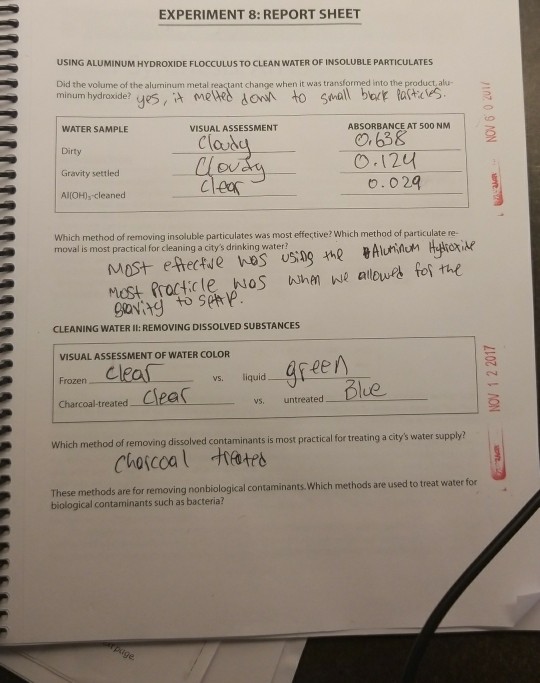 EXPERIMENT 8: REPORT SHEET
USING ALUMINUM HYDROXIDE FLOCCULUS TO CLEAN WATER OF INSOLUBLE PARTICULATES
Did the volume of the aluminum metal reactant change when it was transformed into the product, alu-
minum hydroxide? yes, it melted down to small black particles.
WATER SAMPLE VISUAL ASSESSMENT ABSORBANCE AT 500 NM
Dirty Cloudy 0.638
Gravity settled Cloudy 0.124
Al(OH)₃-cleaned clear 0.029
Which method of removing insoluble particulates was most effective? Which method of particulate re-
moval is most practical for cleaning a city's drinking water?
Most effective was using the Aluminum Hydroxide
Most practicle was when we allowed for the
gravity to settle.
CLEANING WATER II: REMOVING DISSOLVED SUBSTANCES
VISUAL ASSESSMENT OF WATER COLOR
Frozen clear vs. liquid green
Charcoal-treated clear vs. untreated Blue
Which method of removing dissolved contaminants is most practical for treating a city's water supply?
Charcoal treated
These methods are for removing nonbiological contaminants. Which methods are used to treat water for
biological contaminants such as bacteria?
NOV 12 2017
page